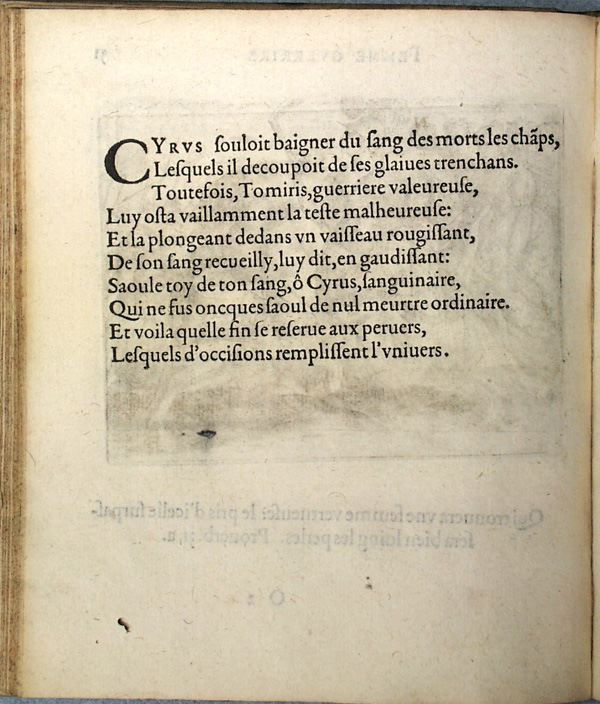 CYRVS souloit baigner du sang des morts les chãps,
Lesquels il decoupoit de ses glaiues trenchans.
Toutefois, Tomiris, guerriere valeureuse,
Luy osta vaillamment la teste malheureuse:
Et la plongeant dedans vn vaisseau rougissant,
De son sang recueilly, luy dit, en gaudissant:
Saoule toy de ton sang, ô Cyrus, sanguinaire,
Qui ne fus oncques saoul de nul meurtre ordinaire.
Et voila quelle fin se reserue aux peruers,
Lesquels d'occisions remplissent l'vniuers.